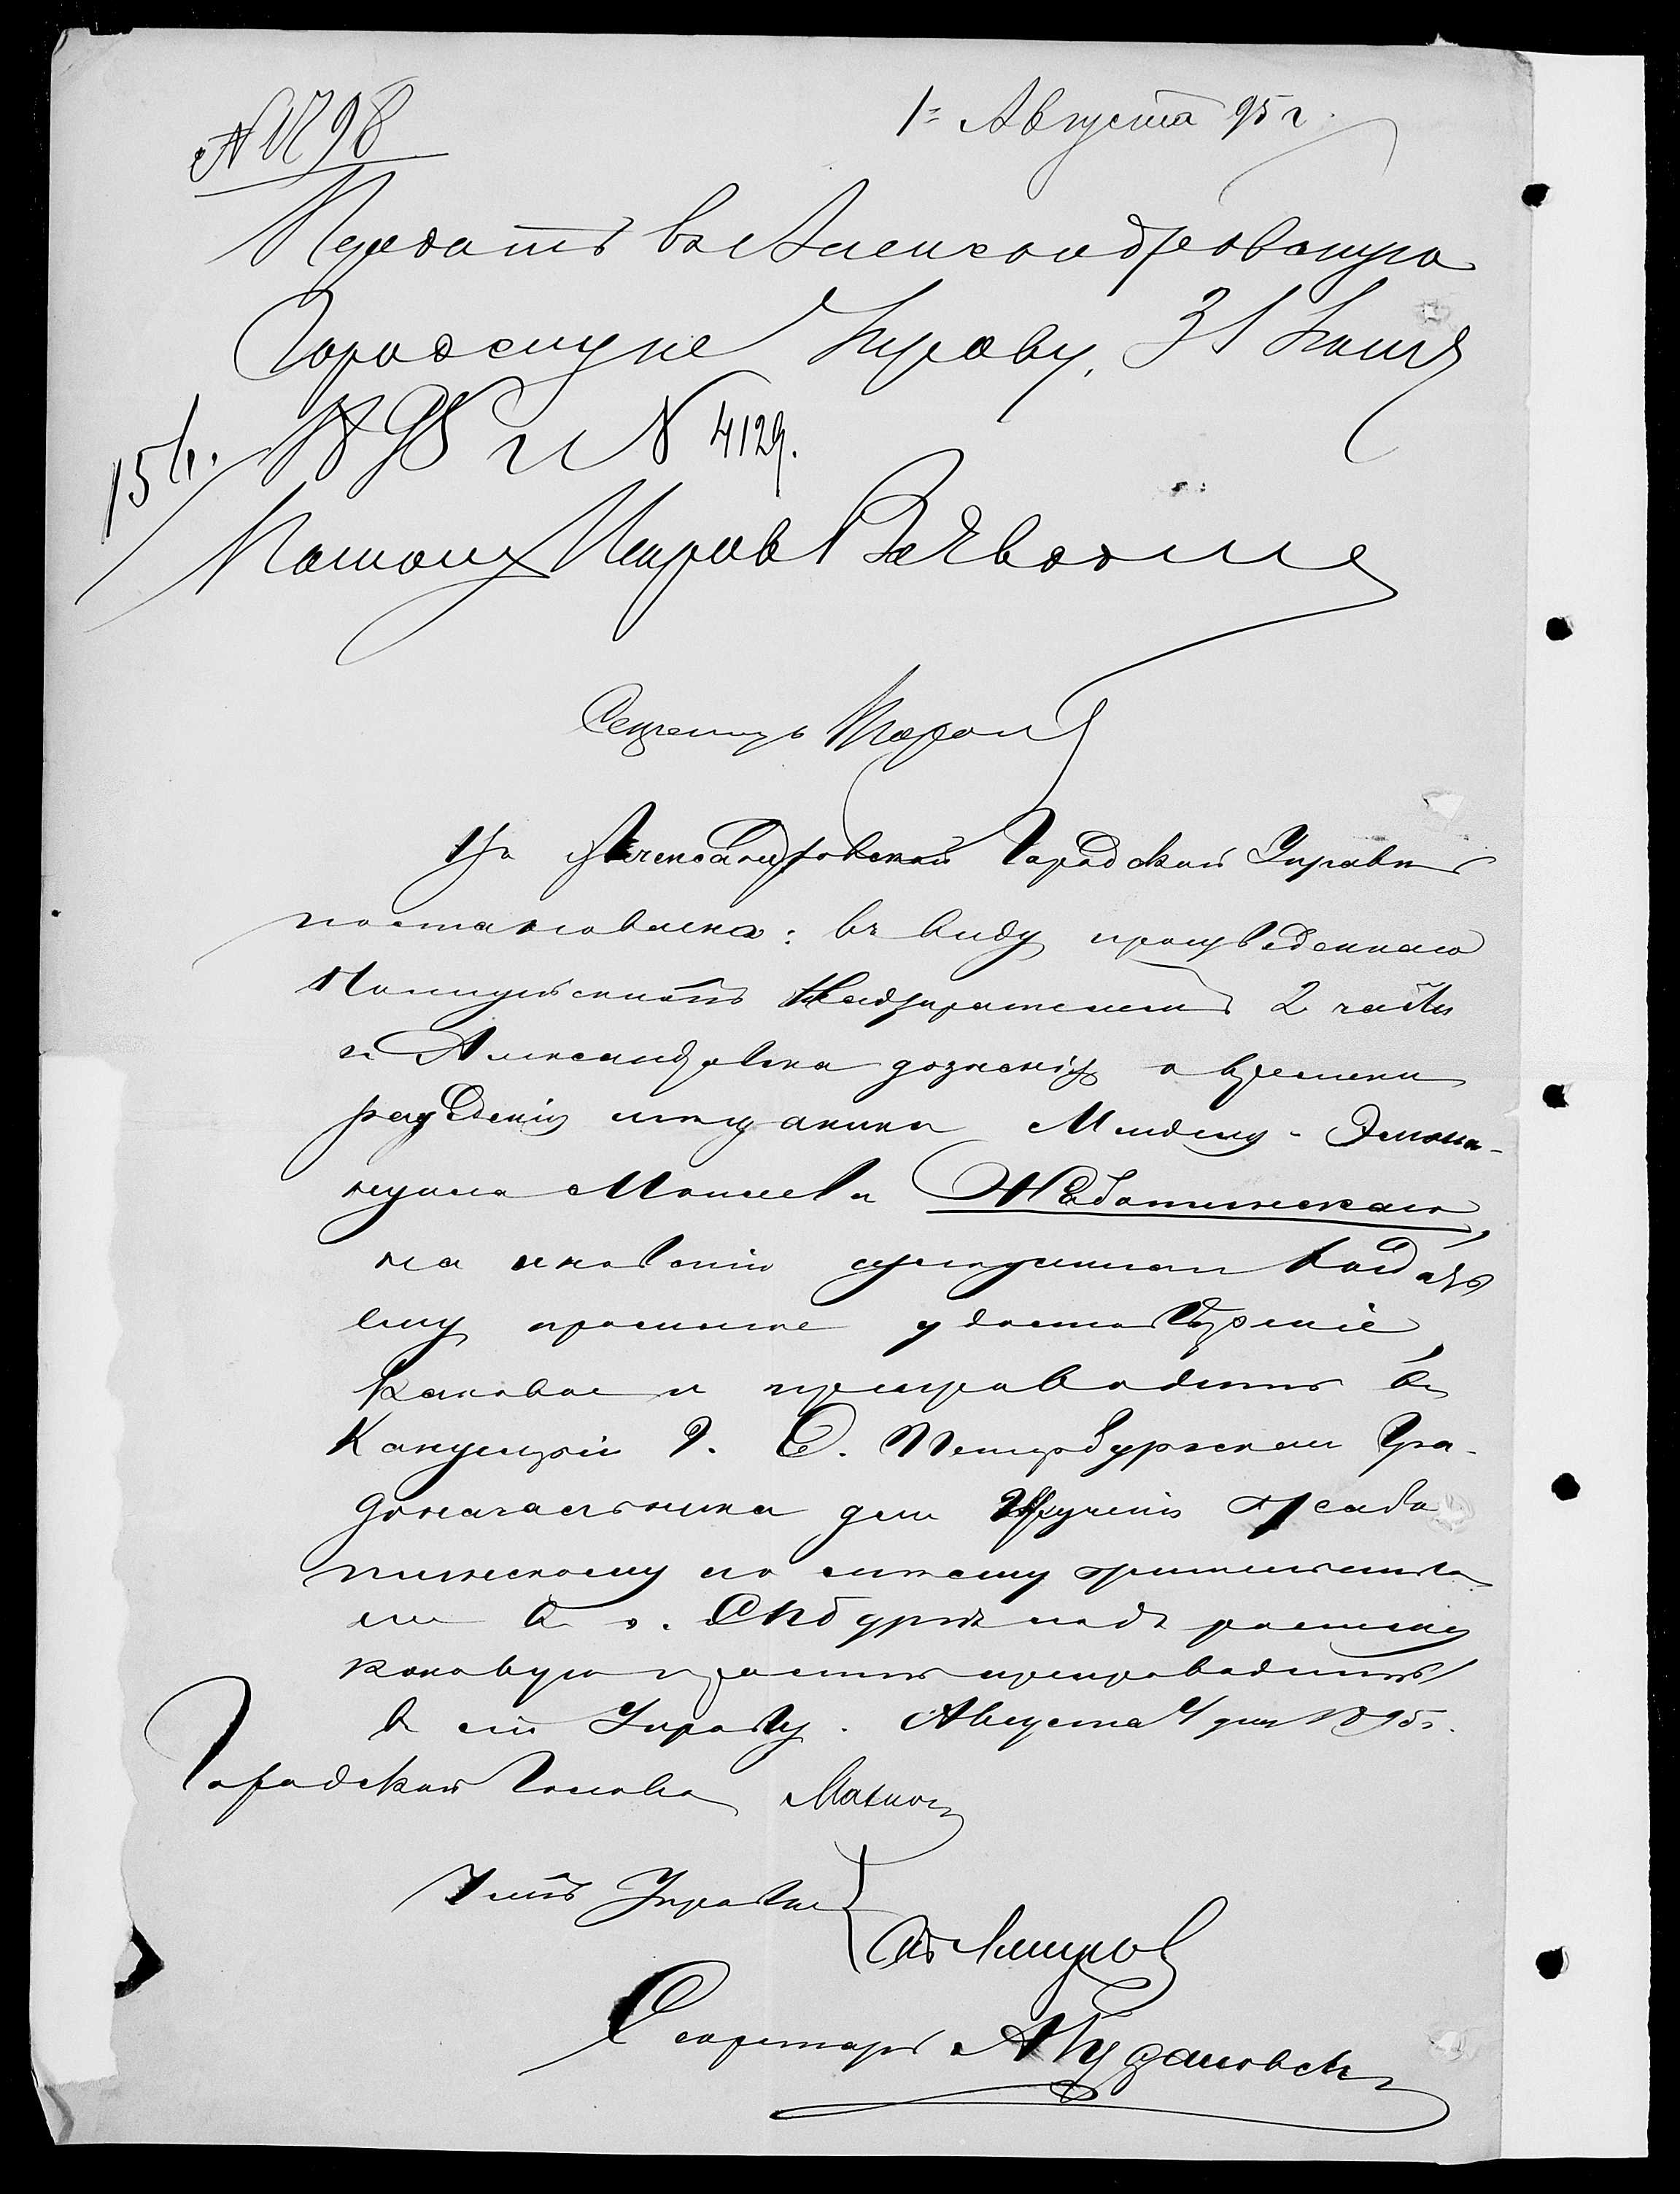 № 1798
1го Августа 95 г.
Передать въ Александровскую
Городскую Управу, 31 Июля
1895 г. № 4129.
15 Ав.
Секретарь
Въ Александровской Городской Управѣ
постановлено: въ виду произведеннаго
Полицейскимъ Надзирателемъ 2 части
г. Александровска дознанія о времени
рожденія мѣщанина Менделя-Эммануила
Моисеева Жаботинскаго,
на основаніи выдать
ему просимое удостовѣреніе,
каковое и препроводить въ
Канцелярію Г. С. Петербургскаго Гра-
доначальника для врученія Жабо-
тинскому по мѣсту жительства
его въ г. СПбургѣ подъ росписку
каковую просить препроводить
въ сію Управу. Августа 4 дня 1895 г.
Городской Голова
Членъ Управы
Секретарь